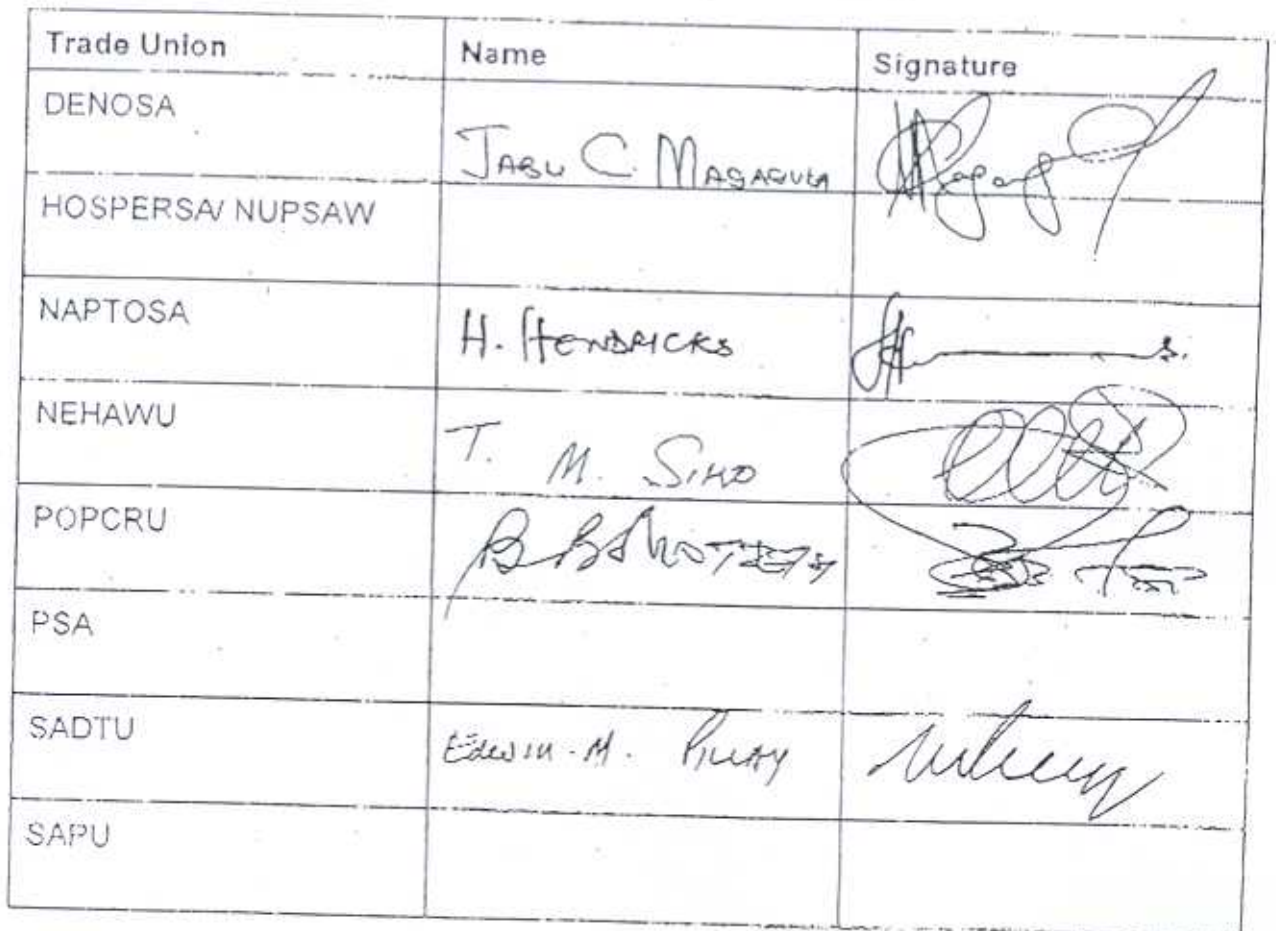 Trade Union Name Signature
DENOSA
JABU C. MAGAGULA
HOSPERSA/ NUPSAW
NAPTOSA
H. HENDRICKS
NEHAWU
T. M. SIKO
POPCRU
PSA
SADTU
Edwin. M. PILLAY
SAPU